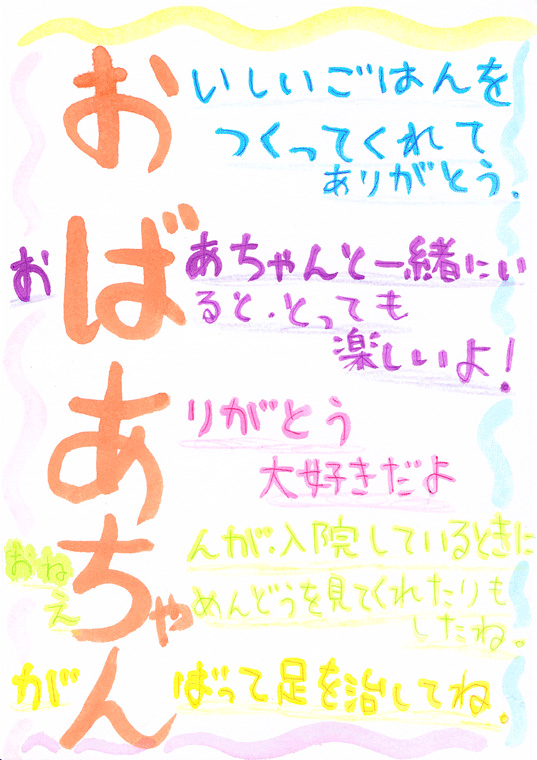 おいしいごはんを
つくってくれて
ありがとう。
おばあちゃんと一緒にい
ると、とっても
楽しいよ!
ありがとう
大好きだよ
おねえちゃんが、入院しているときに
めんどうを見てくれたりも
したね。
がんばって足を治してね。